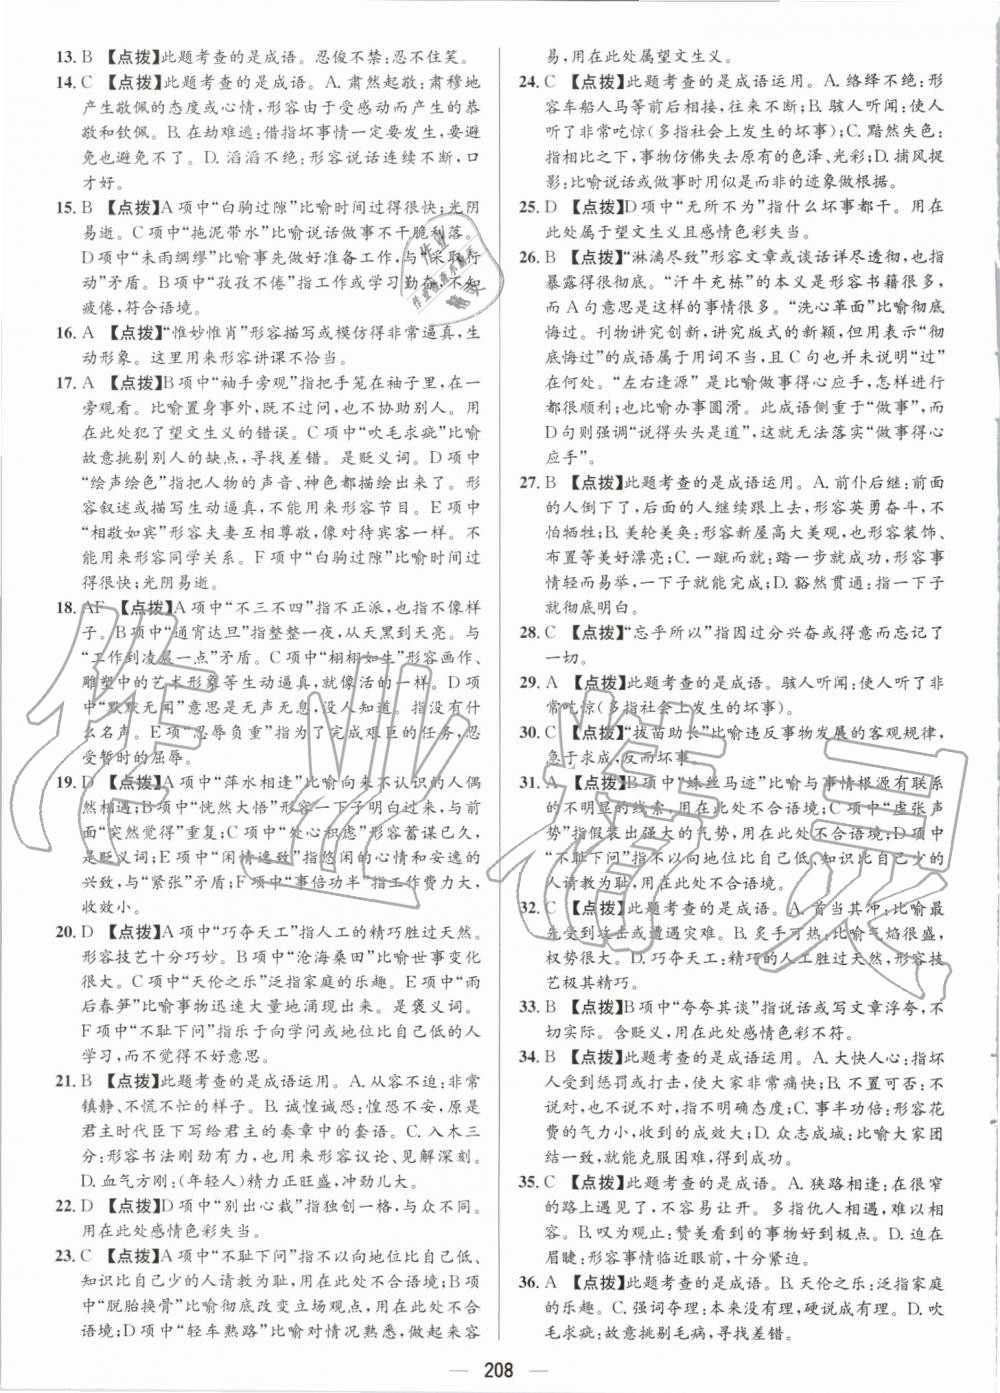 13. B 【点拨】此题考查的是成语。忍俊不禁:忍不住笑。
14. C 【点拨】此题考查的是成语。A. 肃然起敬:肃穆地
产生敬佩的态度或心情，形容由于受感动而产生的恭
敬和钦佩。B. 在劫难逃:借指坏事情一定要发生，要避
免也避免不了。D. 滔滔不绝:形容说话连续不断，口
才好。
15. B 【点拨】A 项中“白驹过隙”比喻时间过得很快;光阴
易逝。C 项中“拖泥带水”比喻说话做事不干脆利落。
D 项中“未雨绸缪”比喻事先做好准备工作，与“采取行
动”矛盾。B 项中“孜孜不倦”指工作或学习勤奋不知
疲倦，符合语境。
16. A 【点拨】“惟妙惟肖”形容描写或模仿得非常逼真，生
动形象。这里用来形容讲课不恰当。
17. A 【点拨】B 项中“袖手旁观”指把手笼在袖子里，在一
旁观看。比喻置身事外，既不过问，也不协助别人。用
在此处犯了望文生义的错误。C 项中“吹毛求疵”比喻
故意挑剔别人的缺点，寻找差错。是贬义词。D 项中
“绘声绘色”指把人物的声音、神色都描绘出来了。形
容叙述或描写生动逼真，不能用来形容节目。E 项中
“相敬如宾”形容夫妻互相尊敬，像对待宾客一样。不
能用来形容同学关系。F 项中“白驹过隙”比喻时间过
得很快;光阴易逝。
18. AF 【点拨】A 项中“不三不四”指不正派，也指不像样
子。B 项中“通宵达旦”指整整一夜，从天黑到天亮。与
“工作到凌晨一点”矛盾。C 项中“栩栩如生”形容画作、
雕塑中的艺术形象等生动逼真，就像活的一样。D 项
中“默默无闻”意思是无声无息，没人知道。指没有什
么名声。E 项“忍辱负重”指为了完成艰巨的任务，忍
受暂时的屈辱。
19. D 【点拨】A 项中“萍水相逢”比喻向来不认识的人偶
然相遇;B 项中“恍然大悟”形容一下子明白过来，与前
面“突然觉得”重复;C 项中“处心积虑”形容蓄谋已久，
是贬义词;E 项中“闲情逸致”指悠闲的心情和安逸的
兴致，与“紧张”矛盾;F 项中“事倍功半”指工作费力大，
收效小。
20. D 【点拨】A 项中“巧夺天工”指人工的精巧胜过天然。
形容技艺十分巧妙。B 项中“沧海桑田”比喻世事变化
很大。C 项中“天伦之乐”泛指家庭的乐趣。E 项中“雨
后春笋”比喻事物迅速大量地涌现出来。是褒义词。
F 项中“不耻下问”指乐于向学问或地位比自己低的人
学习，而不觉得不好意思。
21. B 【点拨】此题考查的是成语运用。A. 从容不迫:非常
镇静、不慌不忙的样子。B. 诚惶诚恐:惶恐不安，原是
君主时代臣下写给君主的奏章中的套语。C. 入木三
分:形容书法刚劲有力，也用来形容议论、见解深刻。
D. 血气方刚:(年轻人)精力正旺盛，冲劲儿大。
22. D 【点拨】D 项中“别出心裁”指独创一格，与众不同。
用在此处感情色彩失当。
23. C 【点拨】A 项中“不耻下问”指不以向地位比自己低、
知识比自己少的人请教为耻，用在此处不合语境;B 项
中“脱胎换骨”比喻彻底改变立场观点，用在此处不合
语境;D 项中“轻车熟路”比喻对情况熟悉，做起来容
易，用在此处属望文生义。
24. C 【点拨】此题考查的是成语运用。A. 络绎不绝:形
容车船人马等前后相接，往来不断;B. 骇人听闻:使人
听了非常吃惊(多指社会上发生的坏事);C. 黯然失色:
指相形之下，事物仿佛失去原有的色泽、光彩;D. 捕风捉
影:比喻说话或做事时用似是而非的迹象做根据。
25. D 【点拨】D 项中“无所不为”指什么坏事都干。用在
此处属于望文生义且感情色彩失当。
26. B 【点拨】“淋漓尽致”形容文章或谈话详尽透彻，也指
暴露得很彻底。“汗牛充栋”的本义是形容书籍很多，
而 A 句意思是这样的事情很多。“洗心革面”比喻彻底
悔过。刊物讲究创新，讲究版式的新颖，但用表示“彻
底悔过”的成语属于用词不当，且 C 句也并未说明“过”
在何处。“左右逢源”比喻做事得心应手，怎样进行
都很顺利;也比喻办事圆滑。此成语侧重于“做事”，而
D 句则强调“说得头头是道”，这就无法落实“做得得心
应手”。
27. B 【点拨】此题考查的是成语运用。A. 前仆后继:前面
的人倒下了，后面的人继续跟上去，形容英勇奋斗，不
怕牺牲;B. 美轮美奂:形容新屋高大美观，也形容装饰、
布置等美好漂亮;C. 一蹴而就:踏一步就成功，形容事
情轻而易举，一下子就能完成;D. 豁然贯通:指一下子
就彻底明白。
28. C 【点拨】“忘乎所以”指因过分兴奋或得意而忘记了
一切。
29. A 【点拨】此题考查的是成语。骇人听闻:使人听了非
常吃惊(多指社会上发生的坏事)。
30. C 【点拨】“拔苗助长”比喻违反事物发展的客观规律，
急于求成，反而坏事。
31. A 【点拨】B 项中“蛛丝马迹”比喻与事情根源有联系
的不明显的线索，用在此处不合语境;C 项中“虚张声
势”指假装出强大的气势，用在此处不合语境;D 项中
“不耻下问”指不以向地位比自己低、知识比自己少的
人请教为耻，用在此处不合语境。
32. C 【点拨】此题考查的是成语。A. 首当其冲:比喻最
先受到攻击或遭遇灾难。B. 炙手可热:比喻气焰很盛，
权势很大。D. 巧夺天工:精巧的人工胜过天然，形容技
艺极其精巧。
33. B 【点拨】B 项中“夸夸其谈”指说话或写文章浮夸，不
切实际。含贬义，用在此处感情色彩不符。
34. B 【点拨】此题考查的是成语运用。A. 大快人心:指坏
人受到惩罚或打击，使大家非常痛快;B. 不置可否:不
说对，也不说不对，指不明确态度;C. 事半功倍:形容花
费的力气小，收到的成效大;D. 众志成城:比喻大家团
结一致，就能克服困难，得到成功。
35. C 【点拨】此题考查的是成语。A. 狭路相逢:在很窄
的路上遇见了，不容易让开。多指仇人相遇，难以相
容。B. 叹为观止:赞美看到的事物好到极点。D. 迫在
眉睫:形容事情临近眼前，十分紧迫。
36. A 【点拨】此题考查的是成语。B. 天伦之乐:泛指家庭
的乐趣。C. 强词夺理:本来没有理，硬说成有理。D. 吹
毛求疵:故意挑剔毛病，寻找差错。
208
作业精灵